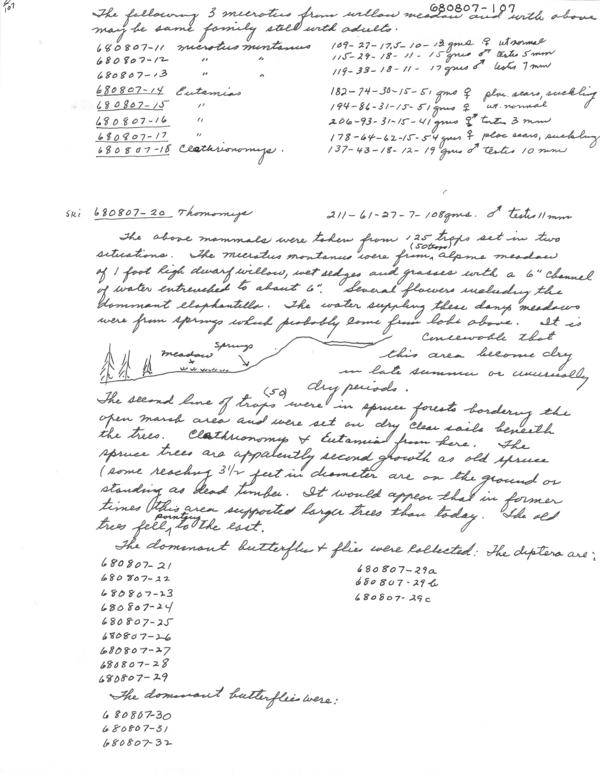 p. 107
680807-107
The following 3 microtus from willow meadow and with above
may be same family still with adults.
680807-11 microtus montanus 109-27-17.5-10-13 gms ♀ ut normal
680807-12 " " 115-29-18-11-15 gms ♂ testes 5 mm
680807-13 " " 119-33-18-11-17 gms ♂ testes 7 mm
680807-14 Eutamias 182-74-30-15-51 gms ♀ plac. scars, suckling
680807-15 " 194-86-31-15-51 gms ♀ ut. normal
680807-16 " 206-93-31-15-41 gms ♂ testes 3 mm
680807-17 " 178-64-62-15-54 gms ♀ plac scars, suckling
680807-18 Clethrionomys. 137-43-18-12-19 gms ♂ testes 10 mm
Ski 680807-20 Thomomys 211-61-27-7-108 gms. ♂ testes 11 mm
The above mammals were taken from 125 traps set in two
situations. The microtus montanus were from alpine meadow
of 1 foot high dwarf willow, wet sedges and grasses with a 6" channel
of water entrenched to about 6". Several flowers including the
dominant elaphantella. The water suppling these damp meadows
were from springs which probably come from lake above. It is
conceivable that
meadow springs
this area become dry
in late summer or unusually
dry periods.
The second line of traps (50) were in spruce forests bordering the
open marsh area and were set on dry clear soils beneath
the trees. Clethrionomys & Eutamias from here. The
spruce trees are apparently second growth as old spruce
(some reaching 3 1/2 feet in diameter are on the ground or
standing as dead timber. It would appear that in former
times this area supported larger trees than today. The old
trees fell pointing to the east.
The dominant butterflies & flies were collected: The diptera are:
680807-21 680807-29a
680807-22 680807-29b
680807-23 680807-29c
680807-24
680807-25
680807-26
680807-27
680807-28
680807-29
The dominant butterflies were:
680807-30
680807-31
680807-32